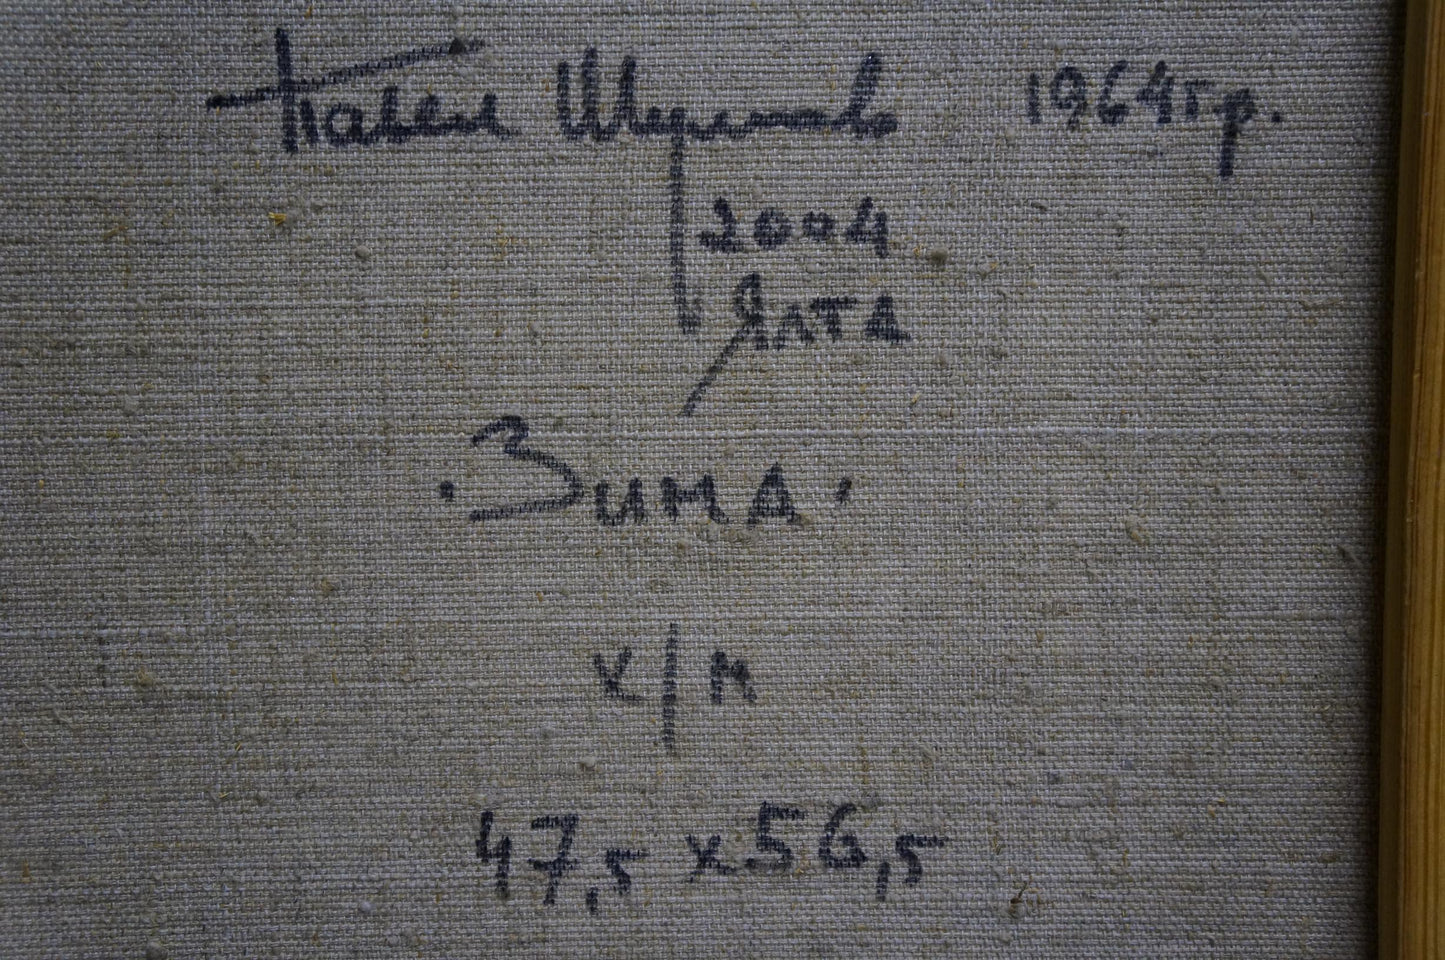 Павел Шумов 1964г.р.
2004
Ялта
·Зима·
х/м
47,5 x 56,5